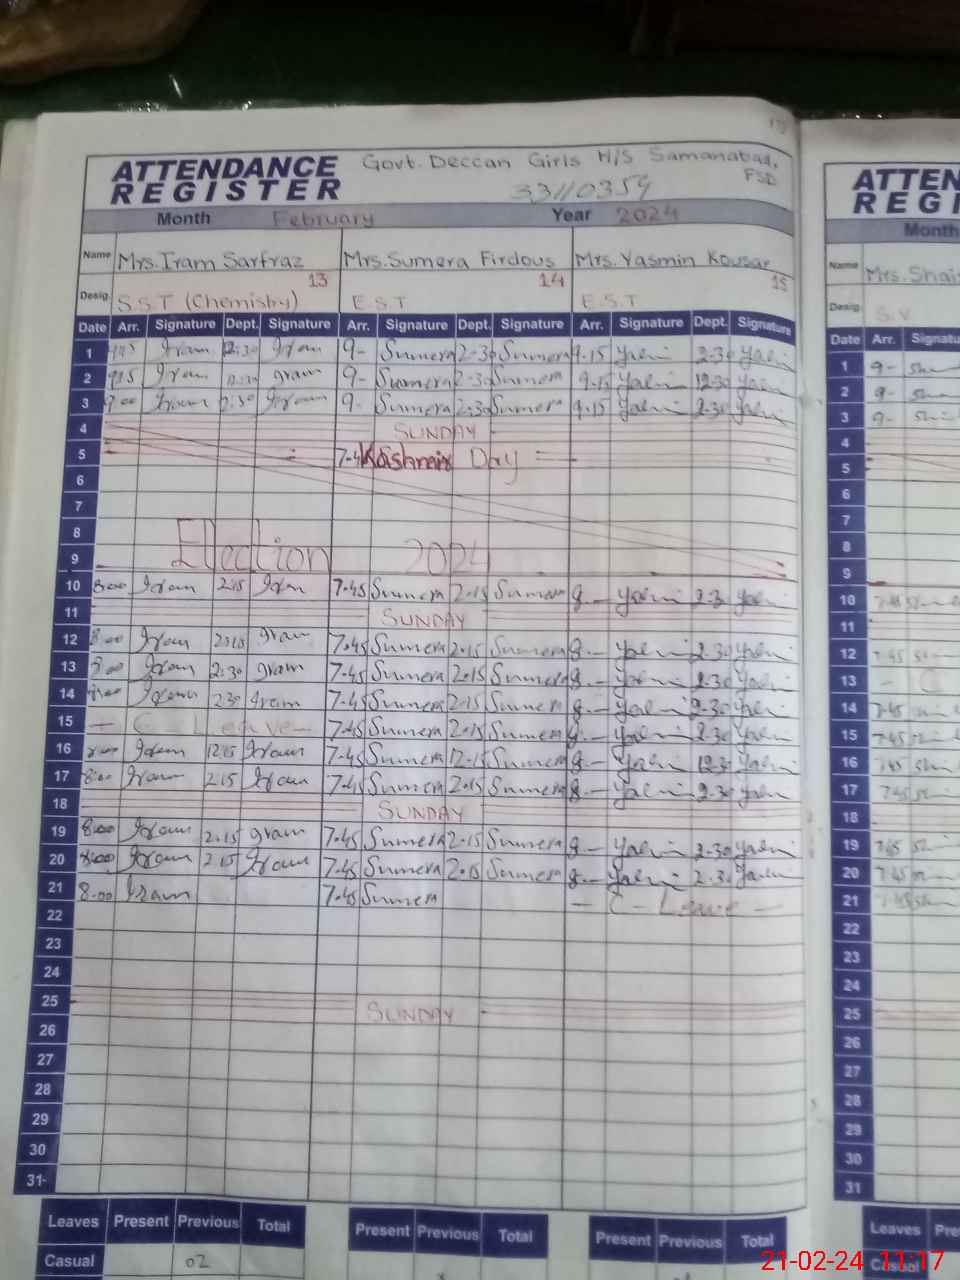 ATTENDANCE REGISTER
Govt. Deccan Girls H/S Samanabad, FSD
33110354
Month February Year 2024
Name Mrs. Iram Sarfraz Mrs. Sumera Firdous Mrs. Yasmin Kousar
13 14 15
Desig. S.S.T (Chemistry) E.S.T E.S.T
Date Arr. Signature Dept. Signature Arr. Signature Dept. Signature Arr. Signature Dept. Signature
1 Iram 12:30 Iram 9- Sumera 2-30 Sumera 9.15 2.30
2 9:15 Iram 12:30 Iram 9- Sumera 2-30 Sumera 9.15 12.30
3 9:00 Iram 2:30 Iram 9- Sumera 2:30 Sumera 9.15 2.30
4 SUNDAY
5 Kashmir Day
6
7
8 Election 2024
9
10 8:00 Iram 2:15 Iram 7.45 Sumera 2.15 Sumera 8.— 2.30
11 SUNDAY
12 8:00 Iram 2:15 Iram 7.45 Sumera 2.15 Sumera 8.— 2.30
13 8:00 Iram 2:30 Iram 7.45 Sumera 2.15 Sumera 8.— 2.30
14 8:00 Iram 2:30 Iram 7.45 Sumera 2.15 Sumera 8.— 2.30
15 — C — Leave — 7.45 Sumera 2.15 Sumera 8.— 2.30
16 8:00 Iram 12:15 Iram 7.45 Sumera 12.15 Sumera 8.— 12.30
17 8:00 Iram 2:15 Iram 7.45 Sumera 2.15 Sumera 8.— 2.30
18 SUNDAY
19 8:00 Iram 2.15 Iram 7.45 Sumera 2.15 Sumera 8.— 2.30
20 8:00 Iram 2.15 Iram 7.45 Sumera 2.15 Sumera 8.— 2.30
21 8.00 Iram 7.45 Sumera — C — Leave —
22
23
24
25 SUNDAY
26
27
28
29
30
31
Leaves Present Previous Total Present Previous Total Present Previous Total
Casual 02
ATTEN
REGI
Month
Name Mrs. Shai
Desig. S.V
Date Arr. Signatu
1 9-
2 9-
3 9-
4
5
6
7
8
9
10
11
12 7.45
13
14 7.45
15 7.45
16 7.45
17 7.45
18
19 7.45
20 7.45
21 7.45
22
23
24
25
26
27
28
29
30
31
Leaves Pre
Casual
21-02-24 11:17